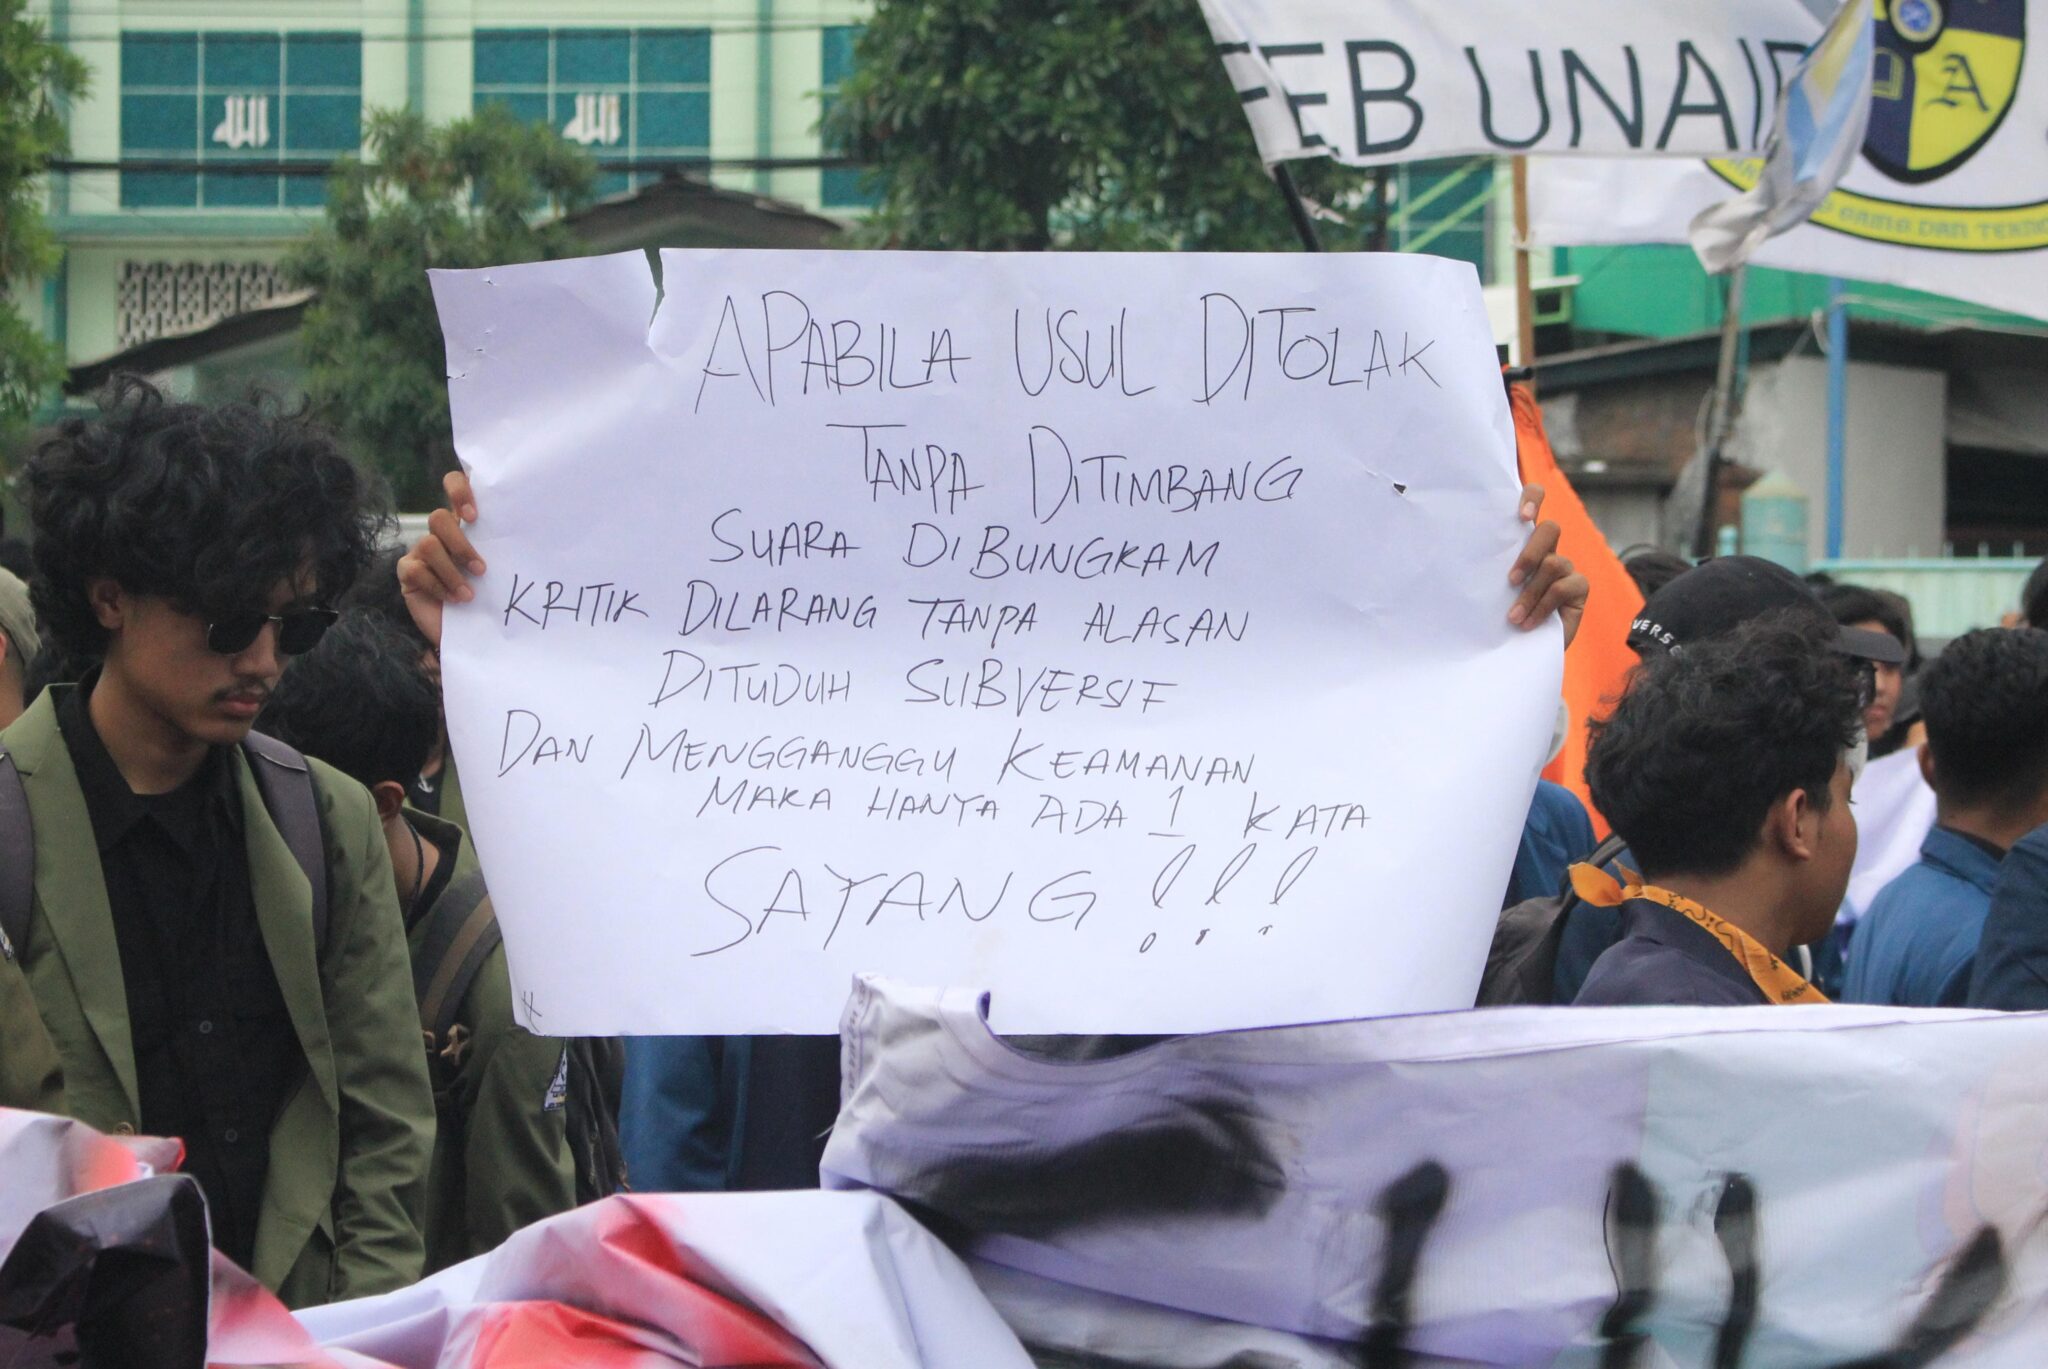 FEB UNAIR
A
APABILA USUL DITOLAK
TANPA DITIMBANG
SUARA DIBUNGKAM
KRITIK DILARANG TANPA ALASAN
DITUDUH SUBVERSIF
DAN MENGGANGGU KEAMANAN
MAKA HANYA ADA 1 KATA
SAYANG !!!